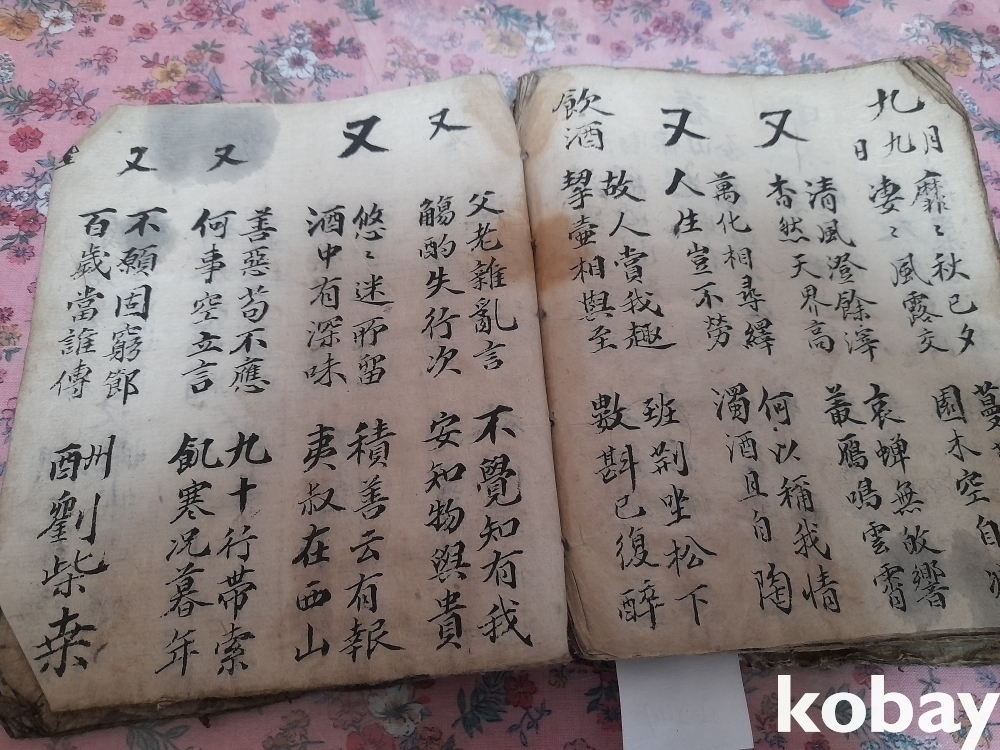 九月九日
靡〻秋已夕
凄〻風露交
蔓
園木空自
又
清風澄餘滓
杳然天界高
哀蟬無故響
叢鴈鳴雲霄
又
萬化相尋繹
人生豈不勞
何以稱我情
濁酒且自陶
飲酒
故人賞我趣
挈壷相與至
班荆坐松下
數斟已復醉
又
父老雜亂言
觴酌失行次
不覺知有我
安知物與貴
又
悠〻迷所留
酒中有深味
積善云有報
夷叔在西山
又
善惡苟不應
何事空立言
九十行帶索
飢寒况暮年
又
不願固窮節
百歲當誰傳
酬劉柴桑
kobay